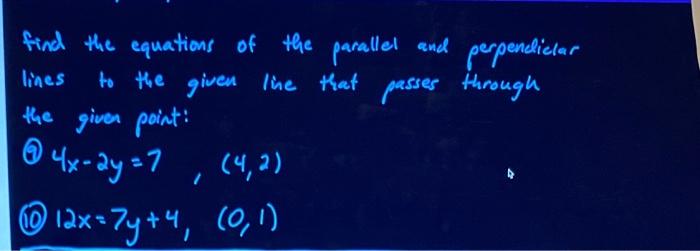 find the equations of the parallel and perpendiclar
lines to the given line that passes through
the given point:
⑨ 4x-2y=7, (4,2)
⑩ 12x=7y+4, (0,1)